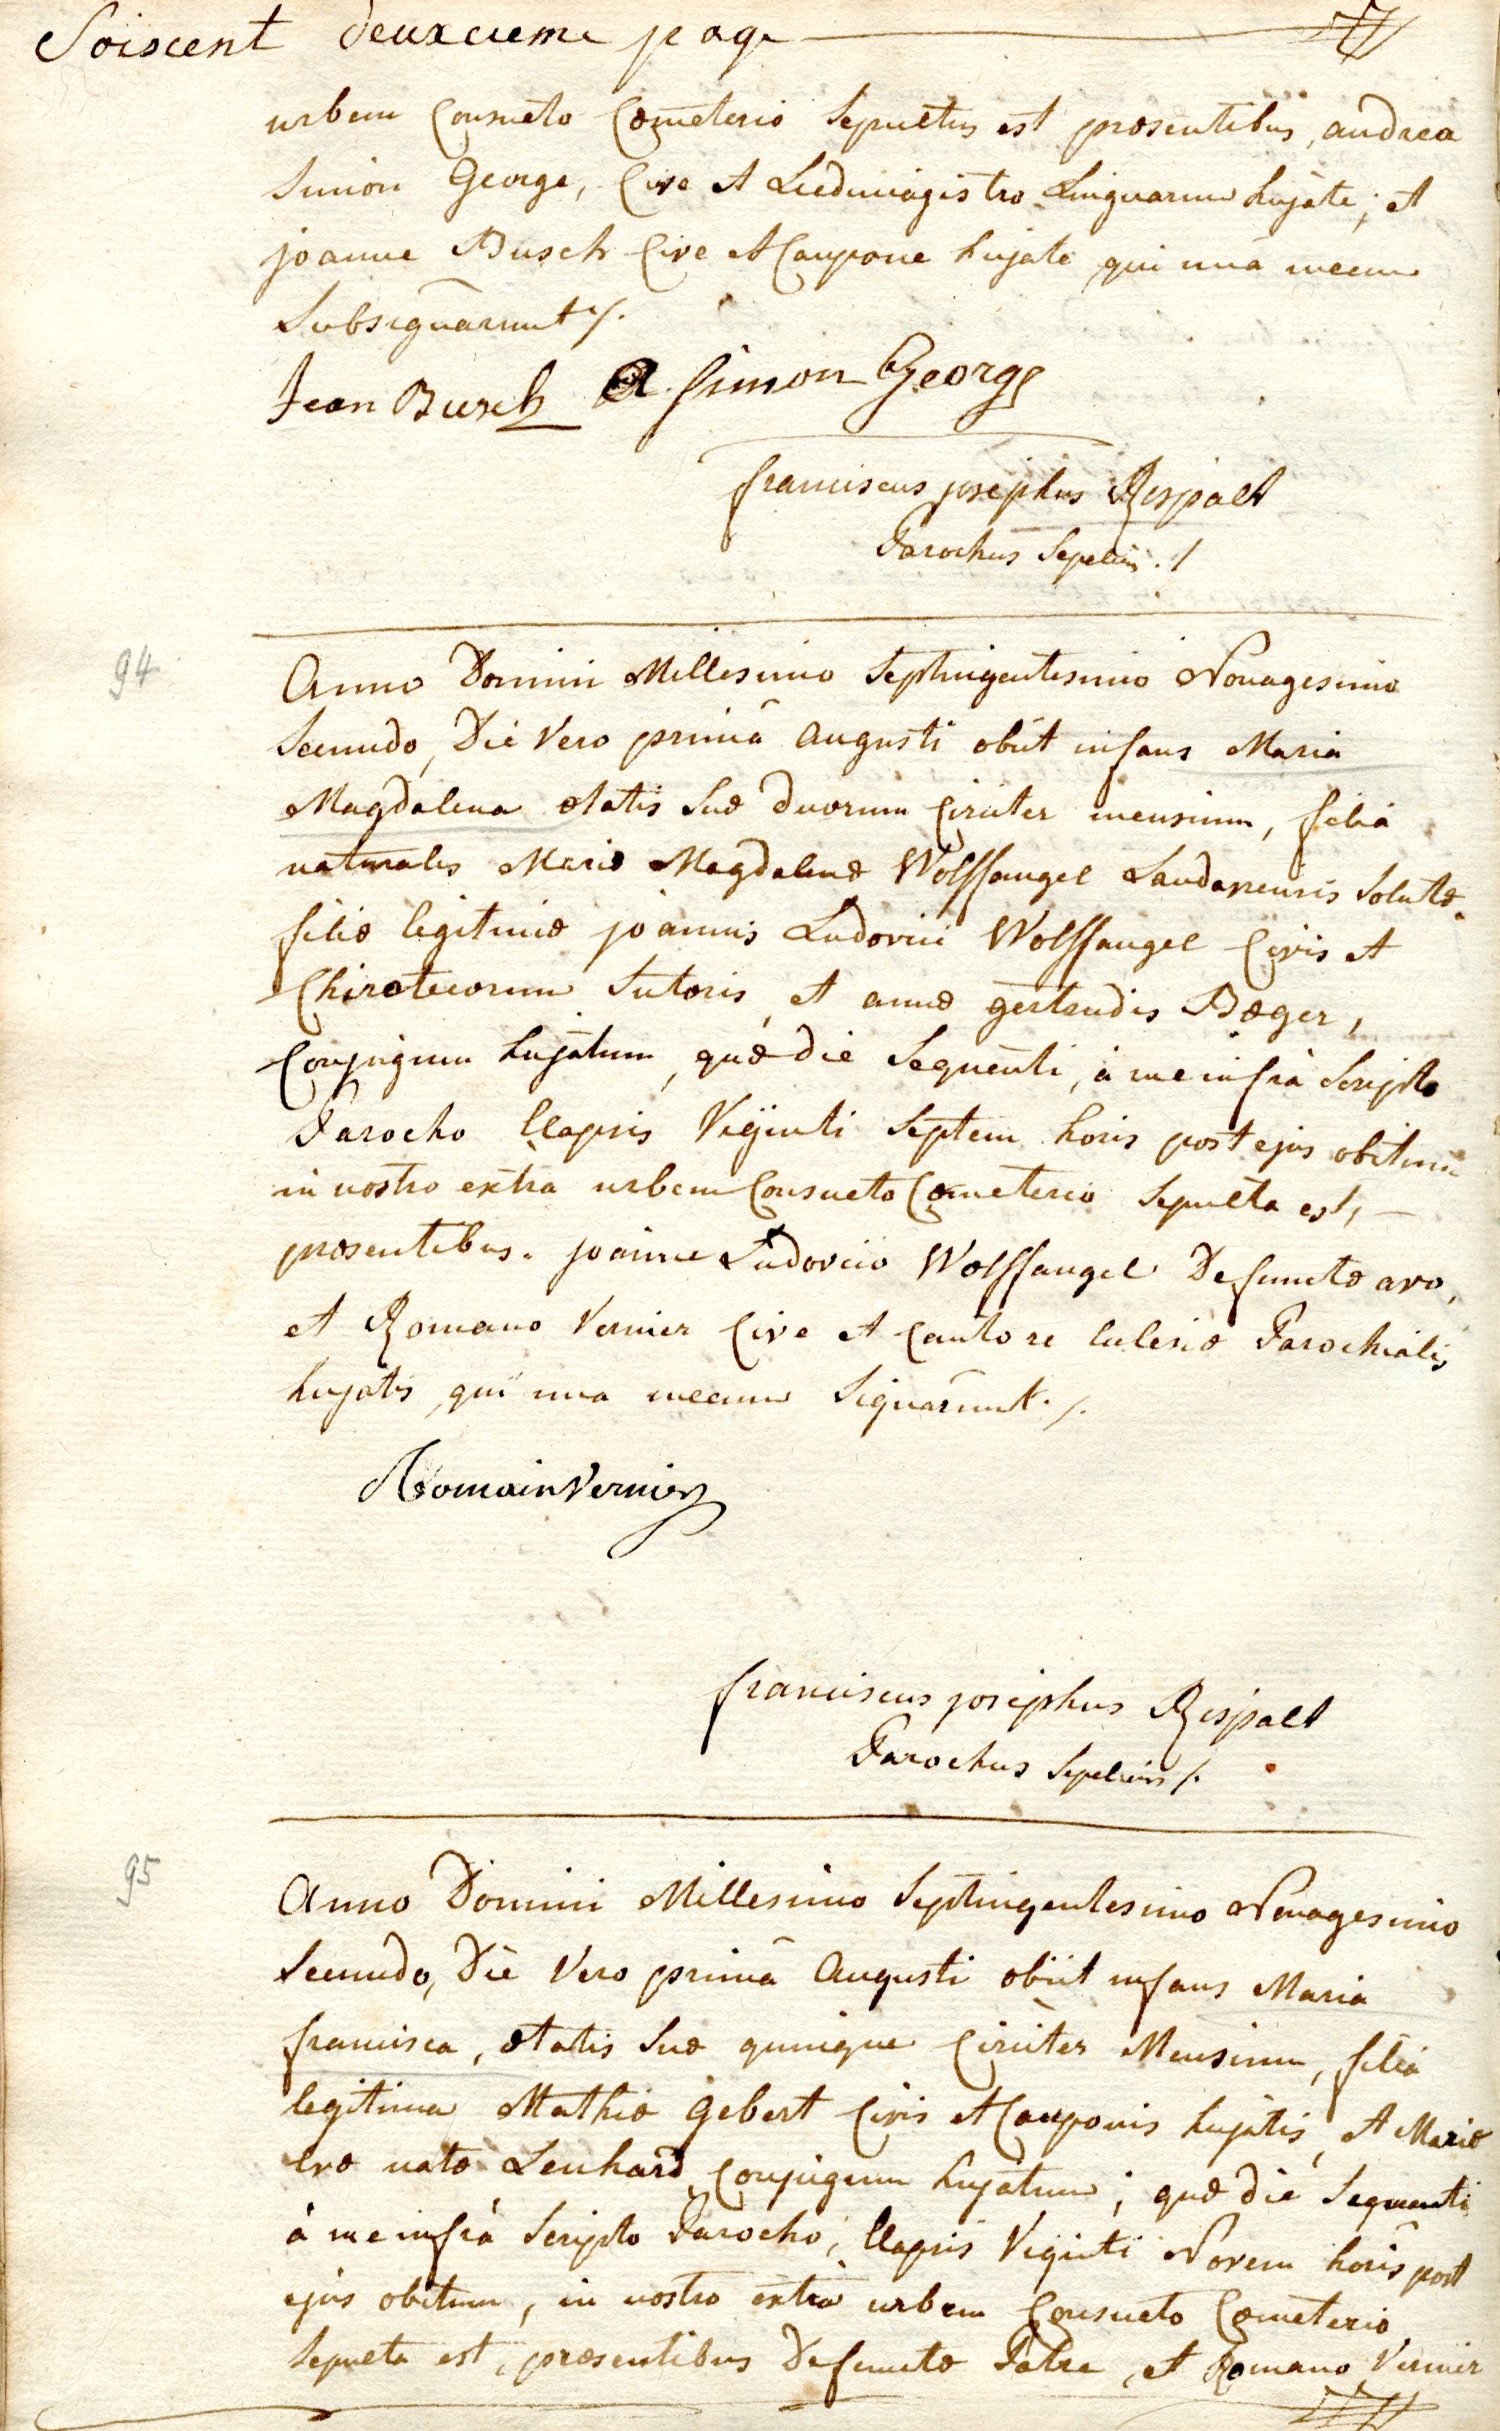 Soiscent deuxcieme page
urbem Consueto Cœmeterio Sepultus est præsentibus, andrea
Simon George, Cive et Ludimagistro Linguarum hujate; et
joanne Busch Cive et Caupone hujate qui unà mecum
Subsignarunt ./.
Jean Busch A. Simon George
franciscus josephus Rispalt
Parochus Sepeliens ./
94
Anno Domini Millesimo Septingentesimo Nonagesimo
Secundo, Die Vero primâ Augusti obiit infans Maria
Magdalena ætatis Suæ duorum Circiter mensium, filia
naturalis Mariæ Magdalenæ Wolffangel Landavensis Solutæ
filiæ legitimæ joannis Ludovici Wolffangel Civis et
Chirotecorum Sutoris, et annæ gertrudis Bæger,
Conjugum hujatum, quæ die Sequenti, à me infrà Scripto
Parocho Elapsis Viginti Septem horis post ejus obitum
in nostro extra urbem Consueto Cœmeterio Sepulta est, —
præsentibus. joanne Ludovico Wolffangel Defunctæ avo,
et Romano Vernier Cive et Cantore Eclesiæ Parochialis
hujatis, qui una mecum Signarunt. ./.
Romain Vernier
franciscus josephus Rispalt
Parochus Sepeliens ./.
95
Anno Domini Millesimo Septingentesimo Nonagesimo
Secundo, Die Vero primâ Augusti obiit infans Maria
francisca, ætatis Suæ quinque Circiter Mensium, filia
legitima Mathiæ Gebert Civis et Cauponis hujatis, et Mariæ
Evæ natæ Lenhard Conjugum hujatum; quæ die Sequenti
à me infrà Scripto Parocho, Elapsis Viginti Novem horis post
ejus obitum, in nostro extrà urbem Consueto Cœmeterio
Sepulta est, præsentibus Defunctæ Patre, et Romano Vernier